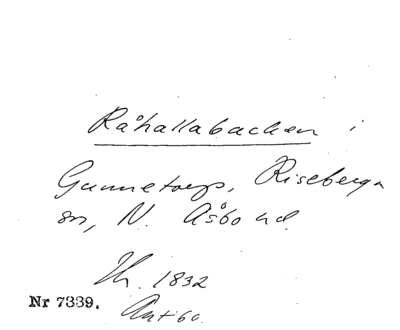 Råhallabacken i
Gunnetorp, Riseberga
sn, N. Åsbo hd.
1832
Nr 7339.